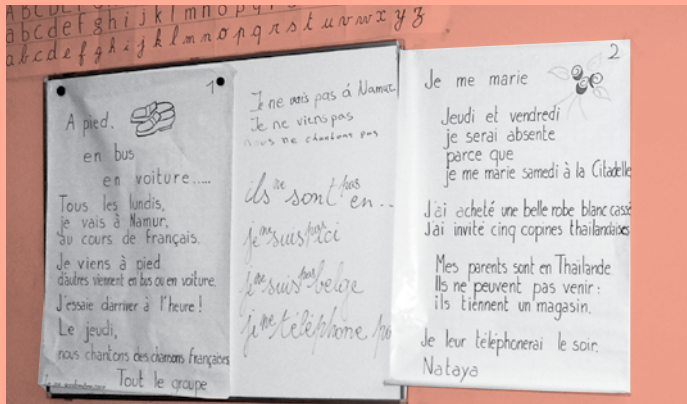 abcdefghijklmnopqrstuvwxyz
abcdefghijklmnopqrstuvwxyz
1
A pied.
en bus
en voiture.....
Tous les lundis,
je vais à Namur,
au cours de français.
Je viens à pied
d'autres viennent en bus ou en voiture.
J'essaie d'arriver à l'heure !
Le jeudi,
nous chantons des chansons françaises
Tout le groupe
Je ne vais pas à Namur
Je ne viens pas
nous ne chantons pas
ils ne sont pas en...
je ne suis pas ici
je ne suis pas belge
je ne téléphone pa
2
Je me marie
Jeudi et vendredi
je serai absente
parce que
je me marie samedi à la Citadelle
J'ai acheté une belle robe blanc cassé
J'ai invité cinq copines thaïlandaises
Mes parents sont en Thaïlande
Ils ne peuvent pas venir :
ils tiennent un magasin.
Je leur téléphonerai le soir.
Nataya